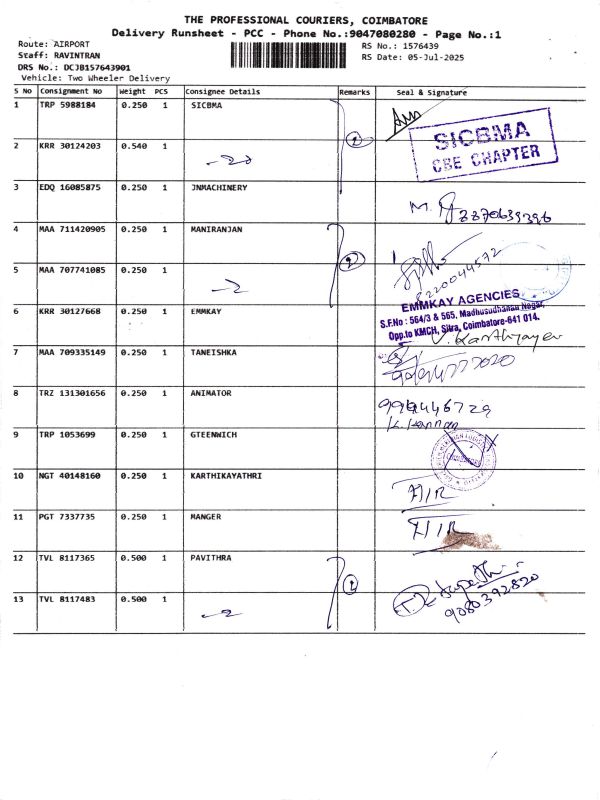 THE PROFESSIONAL COURIERS, COIMBATORE
Delivery Runsheet - PCC - Phone No.:9047080280 - Page No.:1
Route: AIRPORT
Staff: RAVINTRAN
DRS No.: DCJB157643901
Vehicle: Two Wheeler Delivery
RS No.: 1576439
RS Date: 05-Jul-2025
S No Consignment No Weight PCS Consignee Details Remarks Seal & Signature
1 TRP 5988184 0.250 1 SICBMA
SICBMA
CBE CHAPTER
2 KRR 30124203 0.540 1
3 EDQ 16085875 0.250 1 JNMACHINERY
4 MAA 711420905 0.250 1 MANIRANJAN
8220044572
5 MAA 707741085 0.250 1
-2
EMMKAY AGENCIES
S.F.No : 564/3 & 565, Madhusudhanan Nagar,
Opp.to KMCH, Sitra, Coimbatore-641 014.
6 KRR 30127668 0.250 1 EMMKAY
V. Karthyayen
7 MAA 709335149 0.250 1 TANEISHKA
8 TRZ 131301656 0.250 1 ANIMATOR
9994446729
K. Kannan
9 TRP 1053699 0.250 1 GTEENWICH
10 NGT 40148160 0.250 1 KARTHIKAYATHRI
AIR
11 PGT 7337735 0.250 1 MANGER
AIR
12 TVL 8117365 0.500 1 PAVITHRA
13 TVL 8117483 0.500 1
-2
9080392820